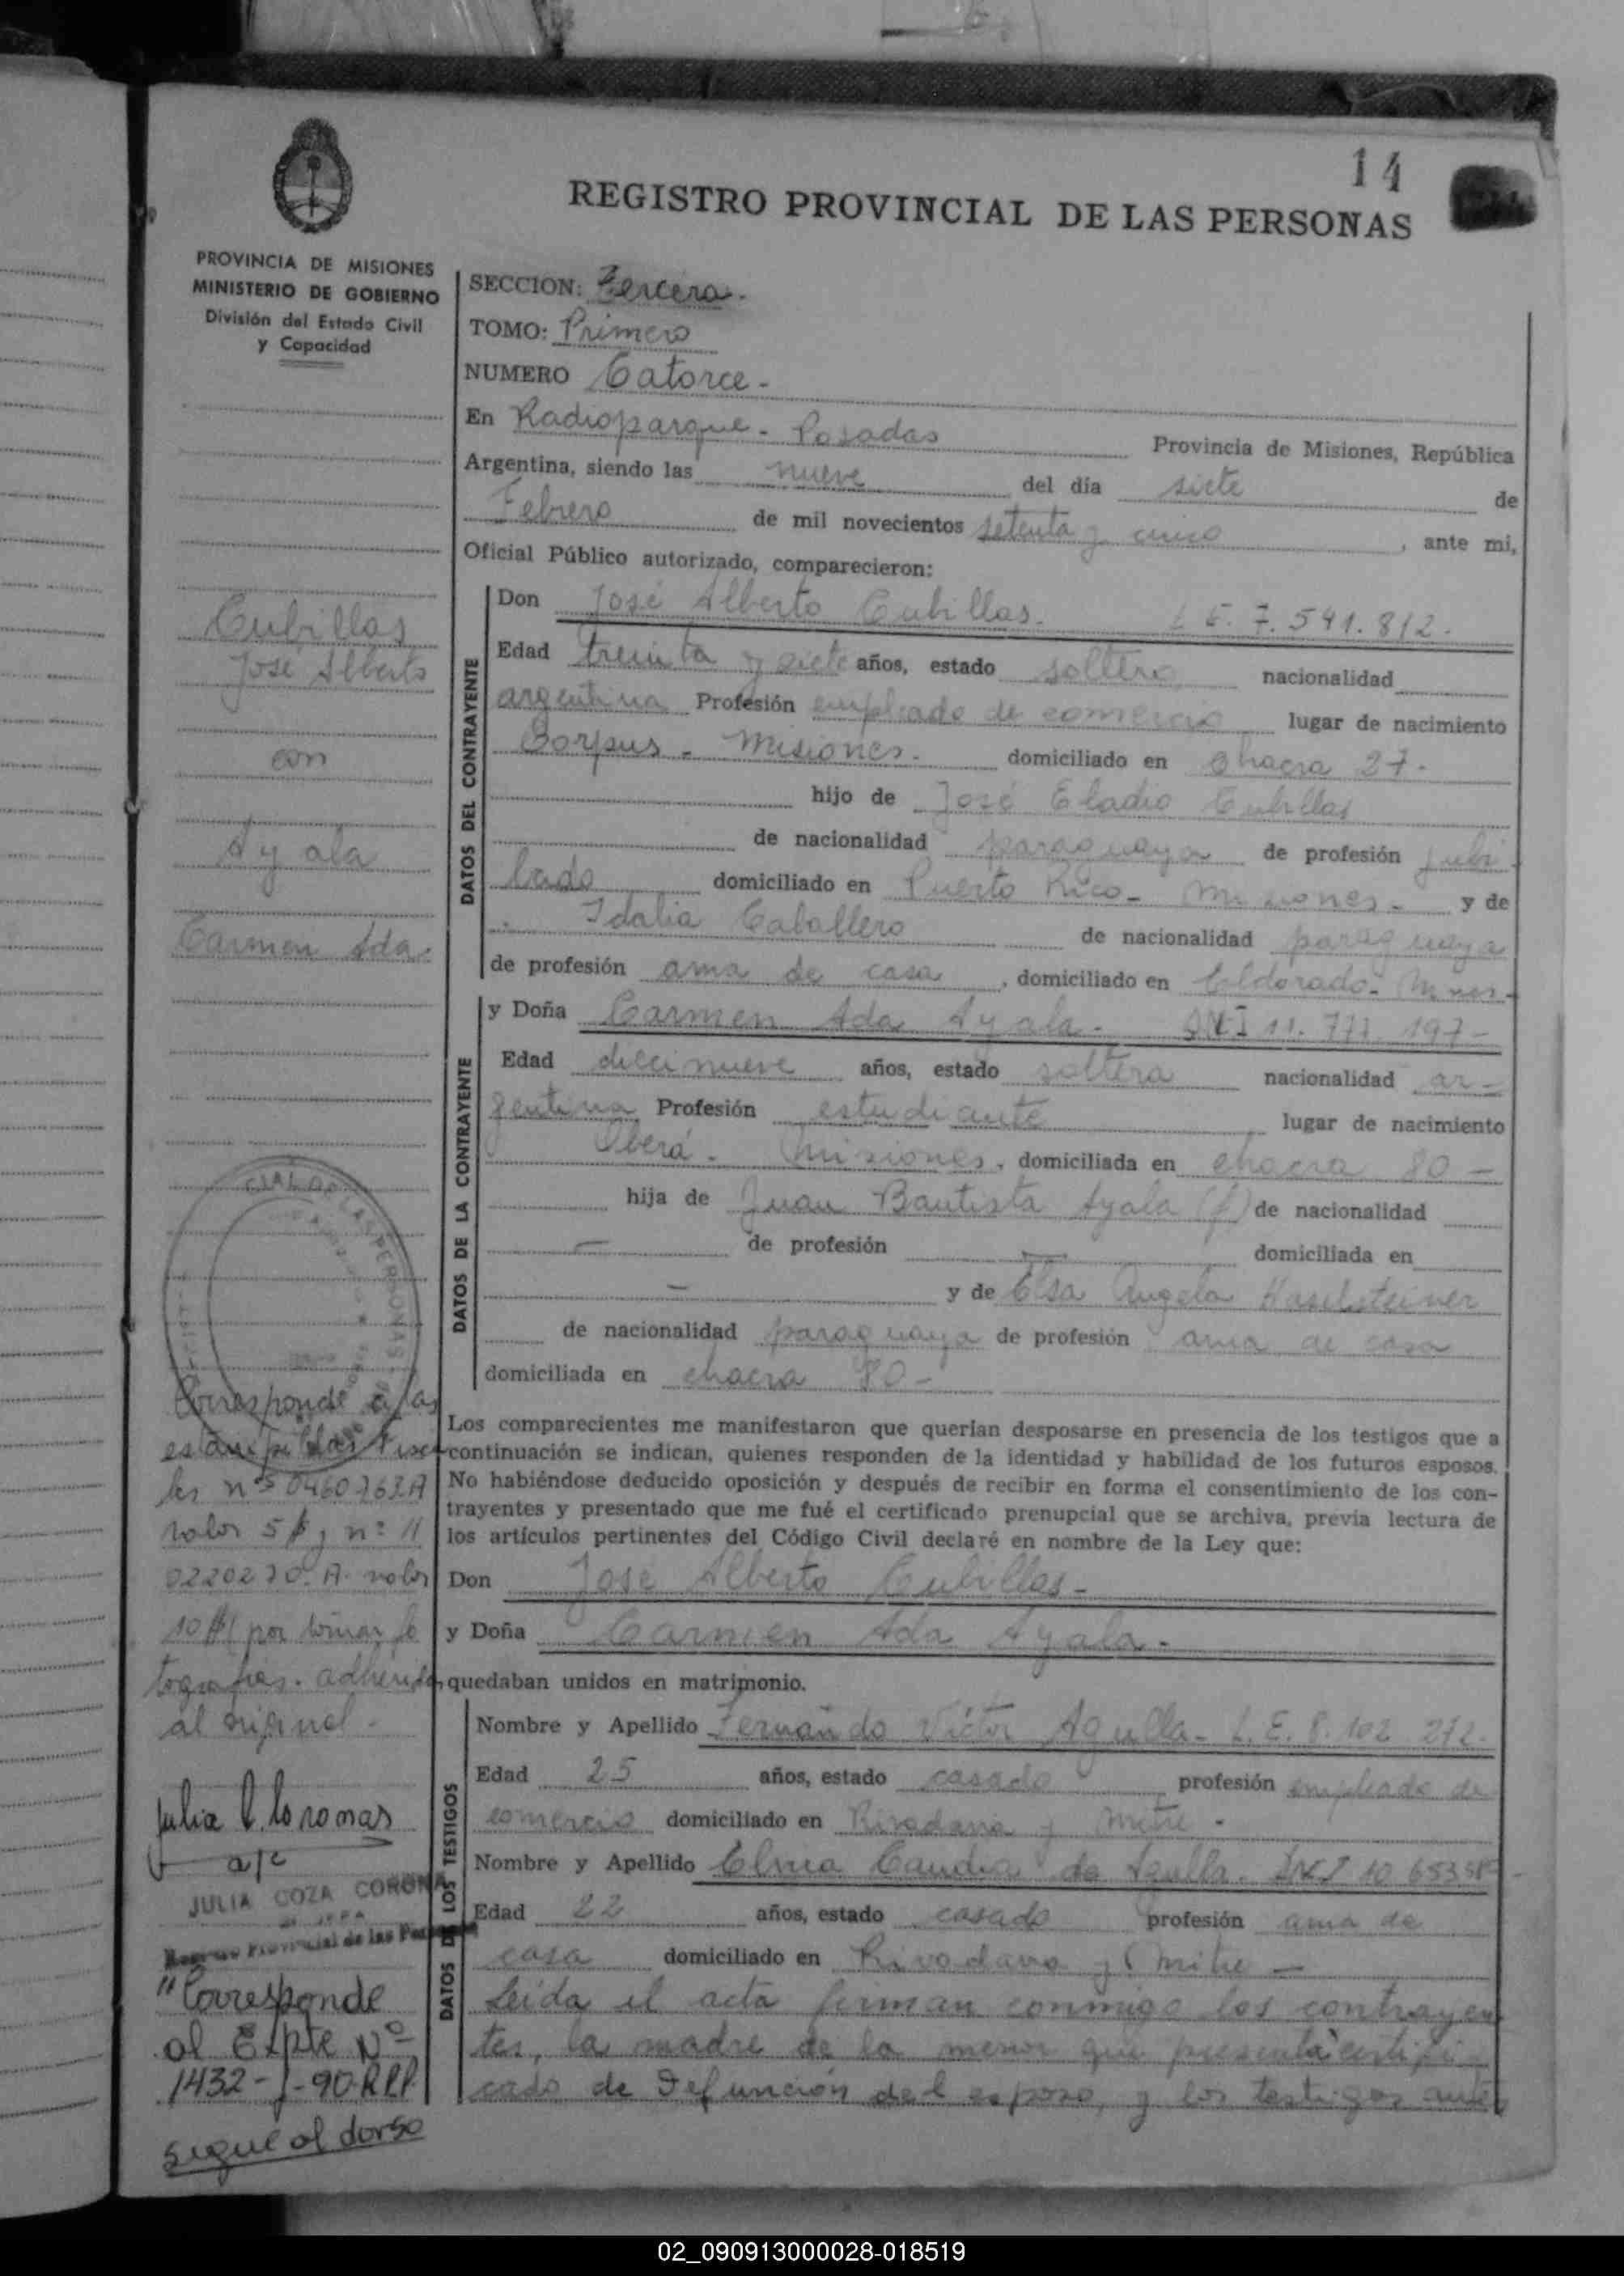 14
REGISTRO PROVINCIAL DE LAS PERSONAS
PROVINCIA DE MISIONES
MINISTERIO DE GOBIERNO
División del Estado Civil
y Capacidad
SECCION: Tercera.
TOMO: Primero
NUMERO Catorce.-
En Radioparque - Posadas Provincia de Misiones, República
Argentina, siendo las nueve del día siete de
Febrero de mil novecientos setenta y cinco, ante mi,
Oficial Público autorizado, comparecieron:
Cubillas
José Alberto
con
Ayala
Carmen Ada.
DATOS DEL CONTRAYENTE
Don José Alberto Cubillas. L E. 7.541.812.
Edad treinta y siete años, estado soltero nacionalidad
argentina Profesión empleado de comercio lugar de nacimiento
Corpus - Misiones. domiciliado en chacra 27.
hijo de José Eladio Cubillas
de nacionalidad paraguaya de profesión jubi-
lado domiciliado en Puerto Rico - Misiones. y de
Idalia Caballero de nacionalidad paraguaya
de profesión ama de casa, domiciliado en Eldorado - Mnes-
DATOS DE LA CONTRAYENTE
y Doña Carmen Ada Ayala. DNI 11. 771. 197-
Edad diecinueve años, estado soltera nacionalidad ar-
gentina Profesión estudiante lugar de nacimiento
Oberá - Misiones, domiciliada en chacra 80 -
hija de Juan Bautista Ayala (f) de nacionalidad
- de profesión - domiciliada en
- y de Elsa Angela Haselsteiner
de nacionalidad paraguaya de profesión ama de casa
domiciliada en chacra 80-
Los comparecientes me manifestaron que querían desposarse en presencia de los testigos que a
continuación se indican, quienes responden de la identidad y habilidad de los futuros esposos.
No habiéndose deducido oposición y después de recibir en forma el consentimiento de los con-
trayentes y presentado que me fué el certificado prenupcial que se archiva, previa lectura de
los artículos pertinentes del Código Civil declaré en nombre de la Ley que:
Don José Alberto Cubillas-
y Doña Carmen Ada Ayala.
quedaban unidos en matrimonio.
DATOS DE LOS TESTIGOS
Nombre y Apellido Fernando Victor Agulla- L. E. 8.102 272-
Edad 25 años, estado casado profesión empleado de
comercio domiciliado en Rivadavia y Mitre.
Nombre y Apellido Elvira de Agulla. DNI 10
Edad 22 años, estado casado profesión ama de
casa domiciliado en Rivadavia y Mitre -
Leída el acta firman conmigo los contrayen
tes, la madre de la menor que presenta certifi-
cado de Defunción del esposo, y los testigos ante
Corresponde a las
estampillas fisca
les nos 0460763A
valor 5 $ y nº 11
0220270. A. valor
10 $ por tomar fo
tografías. adherido
al original.
Julia C. Coronas
a/c
JULIA COZA CORONA
Registro Provincial de las Per
"Corresponde
al Expte Nº
1432-J-90-RPP
sigue al dorso
02_090913000028-018519